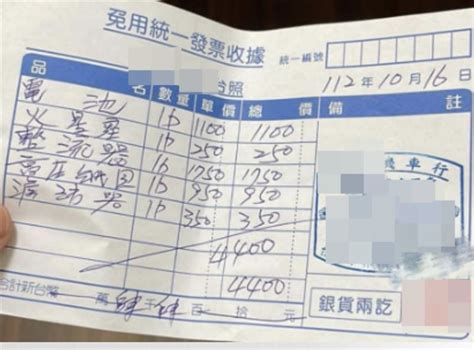 免用統一發票收據
統一編號
台照
112年10月16日
品名 數量 單價 總價 備註
電池 1D 1100 1100
火星塞 1D 250 250
整流器 1D 1750 1750
高壓線圈 1D 950 950
1D 350 350
4400
4400
機車行
合計新台幣 萬肆千肆百拾元
銀貨兩訖